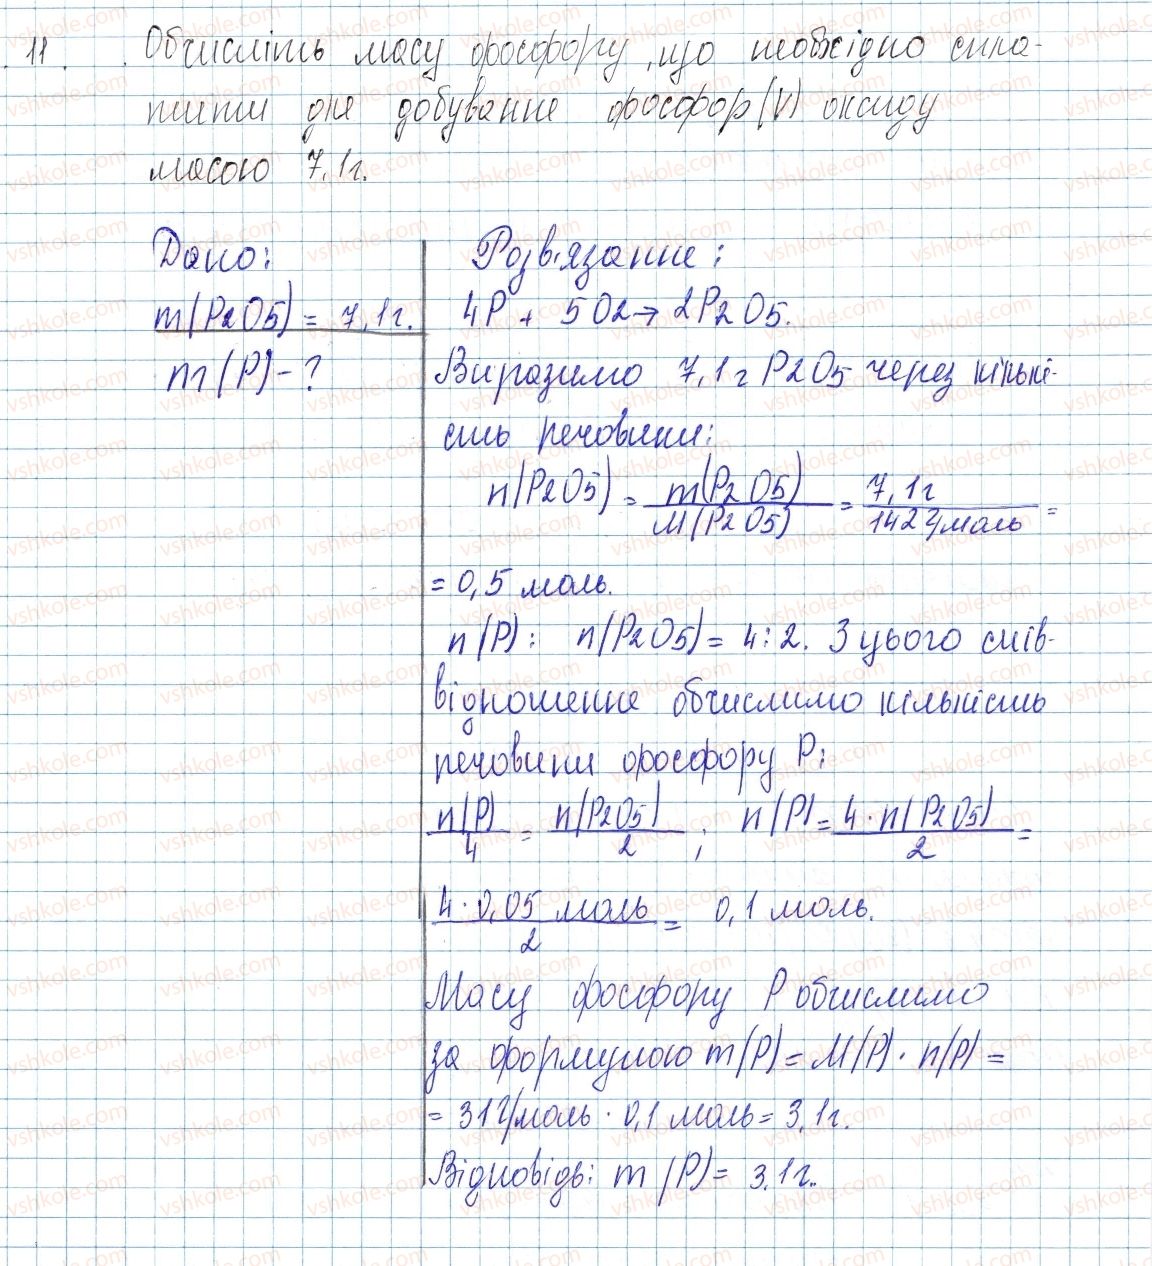 11. Обчисліть масу фосфору, що необхідно спа-
лити для добування фосфор (V) оксиду
масою 7,1г.
Дано:
m(P2O5) = 7,1г.
m(P) - ?
Розв'язання:
4P + 5O2 → 2P2O5.
Виразимо 7,1г P2O5 через кількі-
сть речовини:
n(P2O5) = m(P2O5) / M(P2O5) = 7,1г / 142г/моль =
= 0,5 моль.
n(P) : n(P2O5) = 4:2. З цього спів-
відношення обчислимо кількість
речовини фосфору P:
n(P) / 4 = n(P2O5) / 2 ; n(P) = 4 · n(P2O5) / 2 =
4 · 0,05 моль / 2 = 0,1 моль.
Масу фосфору P обчислимо
за формулою m(P) = M(P) · n(P) =
= 31г/моль · 0,1 моль = 3,1г.
Відповідь: m(P) = 3,1г.
vshkole.com